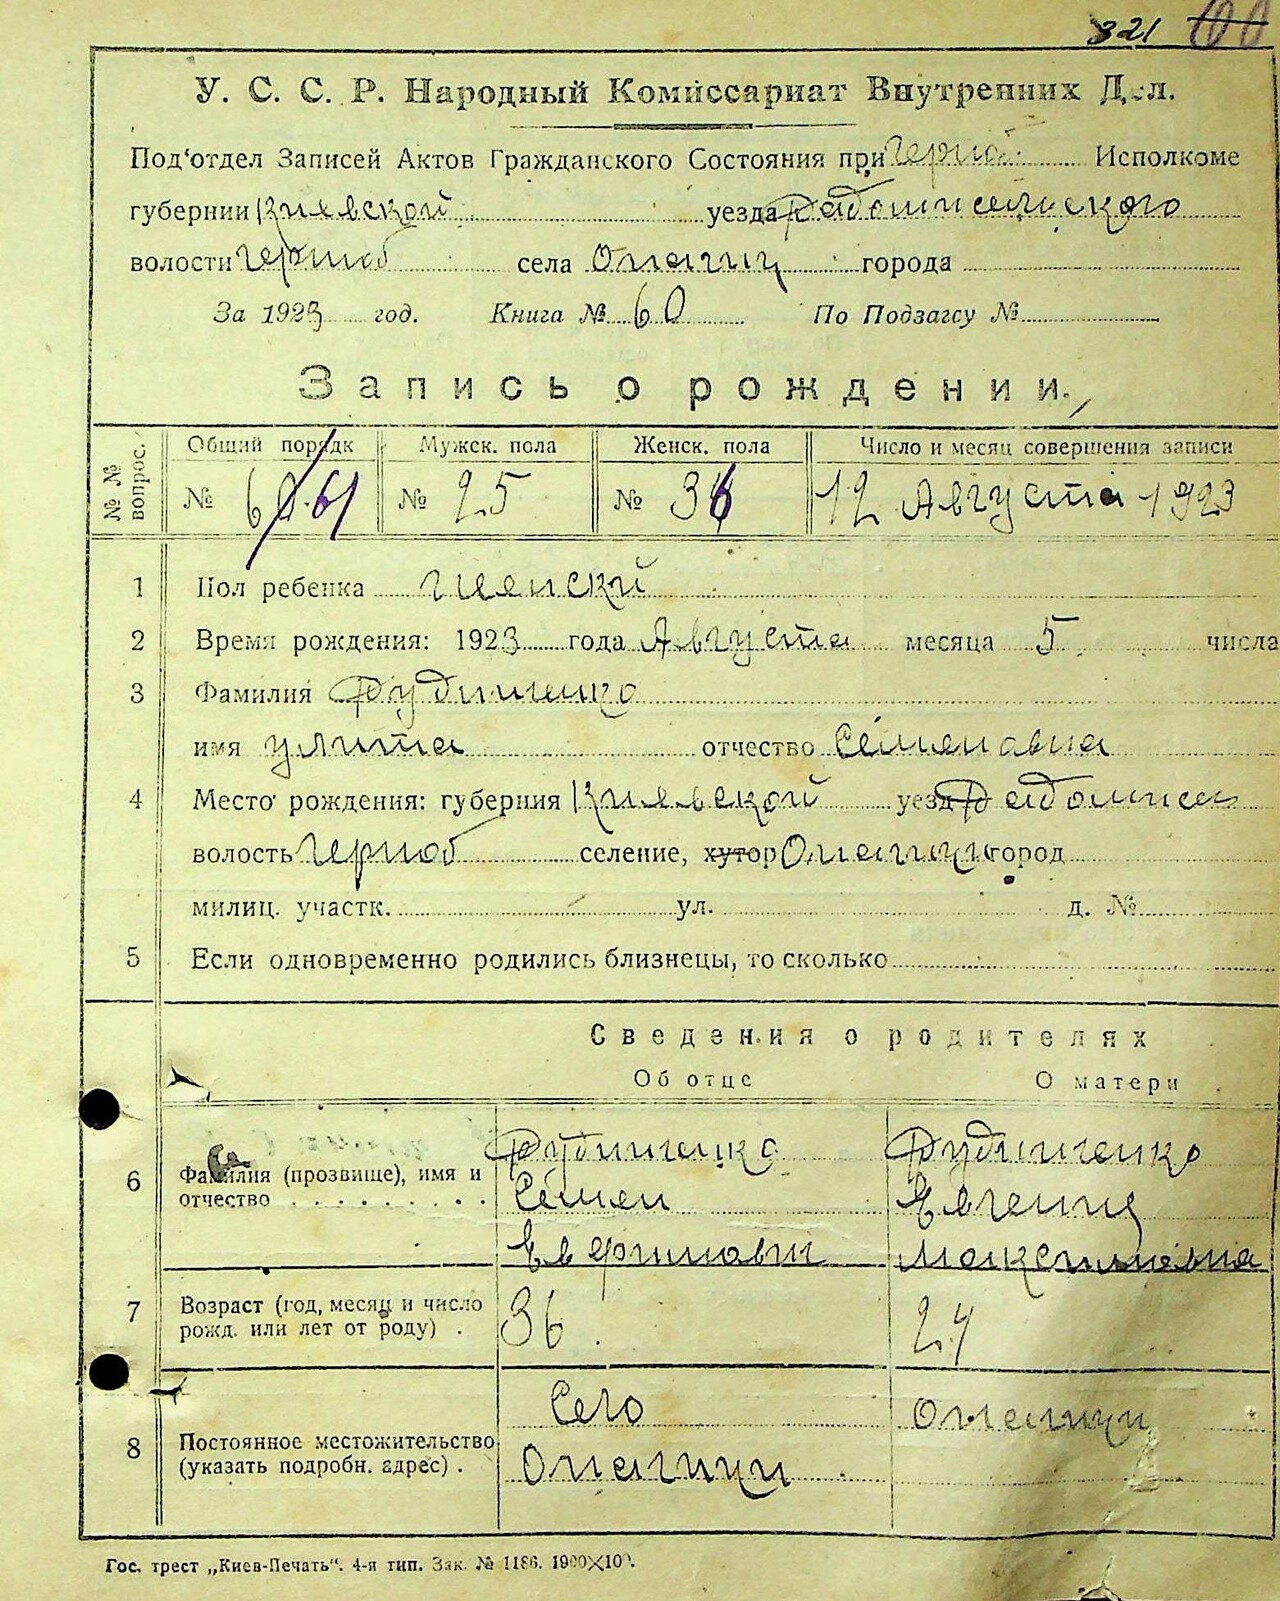 321 100
У. С. С. Р. Народный Комиссариат Внутренних Дел.
Под'отдел Записей Актов Гражданского Состояния при Черноб Исполкоме
губернии Киевской уезда Радомисельского
волости Черноб села Опачичи города
За 1923 год. Книга № 60 По Подзагсу №
Запись о рождении.
№ № вопрос. Общий порядк Мужск. пола Женск. пола Число и месяц совершения записи
№ 60 61 № 25 № 36 12 Августа 1923
1 Пол ребенка женский
2 Время рождения: 1923 года Августа месяца 5 числа
3 Фамилия Рудниченко
имя улита отчество Семеновна
4 Место рождения: губерния Киевской уезд Радомисел
волость Черноб селение, хутор Опачичи город
милиц. участк. ул. д. №
5 Если одновременно родились близнецы, то сколько
Сведения о родителях
Об отце О матери
6 Фамилия (прозвище), имя и отчество
Семен Евгения
Максимовна
7 Возраст (год, месяц и число рожд. или лет от роду) . 36 24
8 Постоянное местожительство (указать подробн. адрес) .
Село Опачичи
Опачичи
Гос. трест „Киев-Печать". 4-я тип. Зак. № 1186. 1900×100.